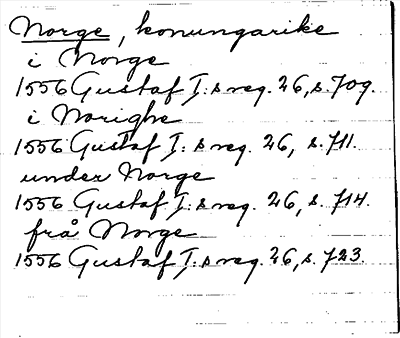 Norge, konungarike
i Norge
1556 Gustaf I:s reg. 26, s. 709.
i Norighe
1556 Gustaf I:s reg. 26, s. 711.
under Norge
1556 Gustaf I:s reg. 26, s. 714.
från Norge
1556 Gustaf I:s reg. 26, s. 723